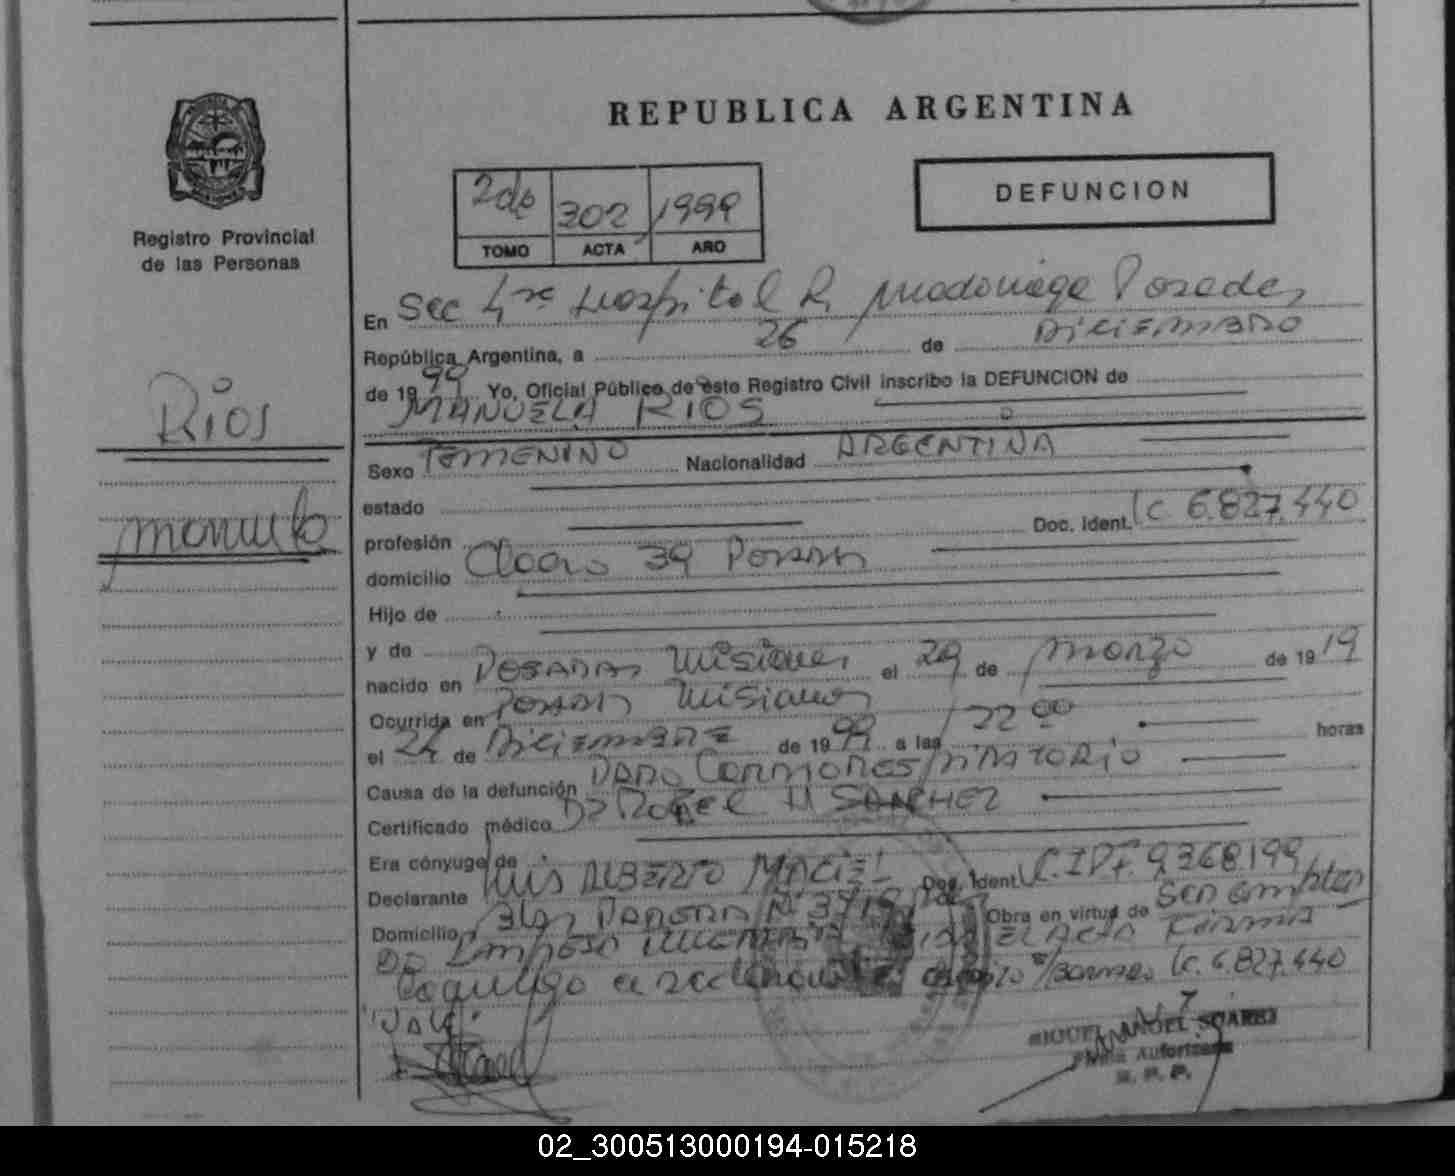 REPUBLICA ARGENTINA
DEFUNCION
2do 302 1999
TOMO ACTA AÑO
Registro Provincial
de las Personas
Rios
Manuela
En Sec 4ta Hospital R. Madariaga Posadas
República Argentina, a 26 de DICIEMBRE
de 1999 Yo, Oficial Público de este Registro Civil inscribo la DEFUNCION de
MANUELA RIOS
Sexo FEMENINO Nacionalidad ARGENTINA
estado
profesión Doc. Ident. lc. 6.827.440
domicilio 39 Posadas
Hijo de
y de
nacido en POSADAS Misiones el 29 de Marzo de 1919
Ocurrida en Posadas Misiones
el 24 de DICIEMBRE de 1999 a las 22 00 horas
Causa de la defunción PARO CARDIORESPIRATORIO
Certificado médico Dr Rafael H SANCHEZ
Era cónyuge de
Declarante LUIS ALBERTO MACIEL Doc. Ident. C.I.P.F. 9.368.199
Domicilio Obra en virtud de Ser empleado
DE Empresa EL ACTA FIRMA
s/borrado lc. 6.827.440
"VALE"
MIGUEL ANGEL SUAREZ
Firma Autorizada
R. P. P.
02_300513000194-015218